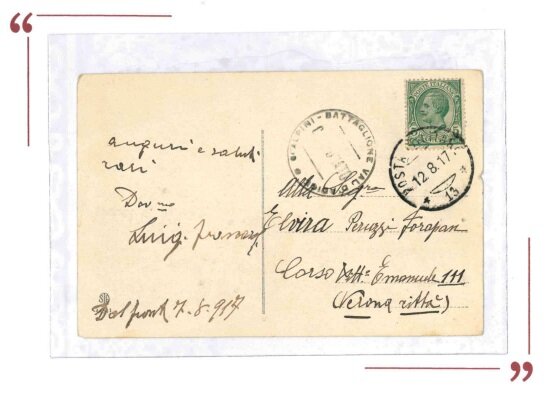 auguri e saluti
cari
Dev mo
Luigi
Dal front 7-8-917
6° ALPINI - BATTAGLIONE VAL D'ADIGE
POSTE ITALIANE
POSTA MILITARE
12.8.17.
13
Alla
Elvira Peruzzi Forapan
Corso Vitt: Emanuele 111
(Verona città)